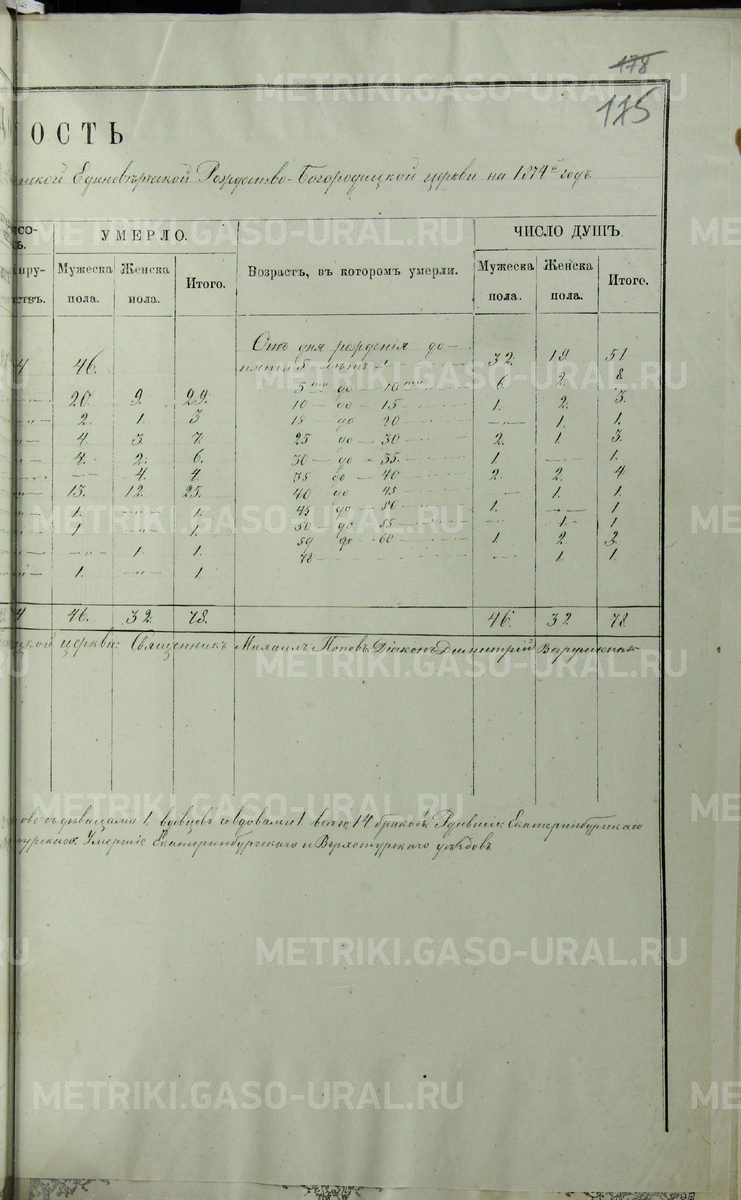 178
175
ОСТЬ
Единовѣрческой Рождество-Богородицкой церкви на 1874й годъ
УМЕРЛО. ЧИСЛО ДУШЪ.
Мужеска пола. Женска пола. Итого. Возрастъ, въ которомъ умерли. Мужеска пола. Женска пола. Итого.
4 46. Отъ дня рожденія до
пяти 5 лѣтъ 32. 19 51
5ти до 10ти 6 2. 8
20. 9. 29. 10 до 15 1. 2. 3.
2. 1. 3 15 до 20 1. 1.
4. 3. 7. 25 до 30 2. 1 3.
4. 2. 6. 30 до 35. 1. 1.
4. 4. 35 до 40 2. 2. 4
13. 12. 25. 40 до 45 1. 1.
1. 1. 45 до 50 1. 1
1 1. 50 до 55 1. 1
1 1. 59 до 60 1 2. 3.
1. 1 78 1. 1.
4 46. 32. 78. 46. 32 78
церкви: Священникъ Михаилъ Поповъ. Діаконъ Димитрій
дѣвицами 1. вдовцовъ со вдовами 1 всего 14 браковъ. Екатеринбургскаго
Умершіе Екатеринбургскаго и Верхотурскаго уѣздовъ.
METRIKI.GASO-URAL.RU